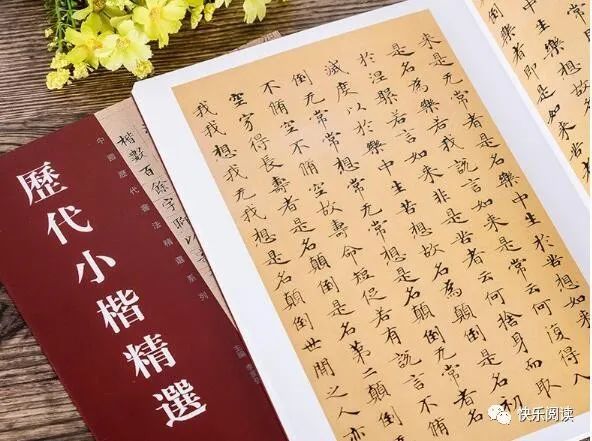 樂者即是如來
中生樂想
來是无常者是名樂中生於苦想如來
是名為樂若我說言如來是常云何復得入
於涅槃若言如來非是苦者云何捨身而取
滅度以於樂中生苦想故名為顛倒是名初
倒无常常想常无常想是名顛倒无常者名
不脩空不脩空故壽命短促若有說言不脩
空寂得長壽者是名顛倒是名第二顛倒
我我想我无我想是名顛倒世間之人亦
楷數百餘字
中國歷代書法精選系列
歷代小楷精選
主編
快乐阅读